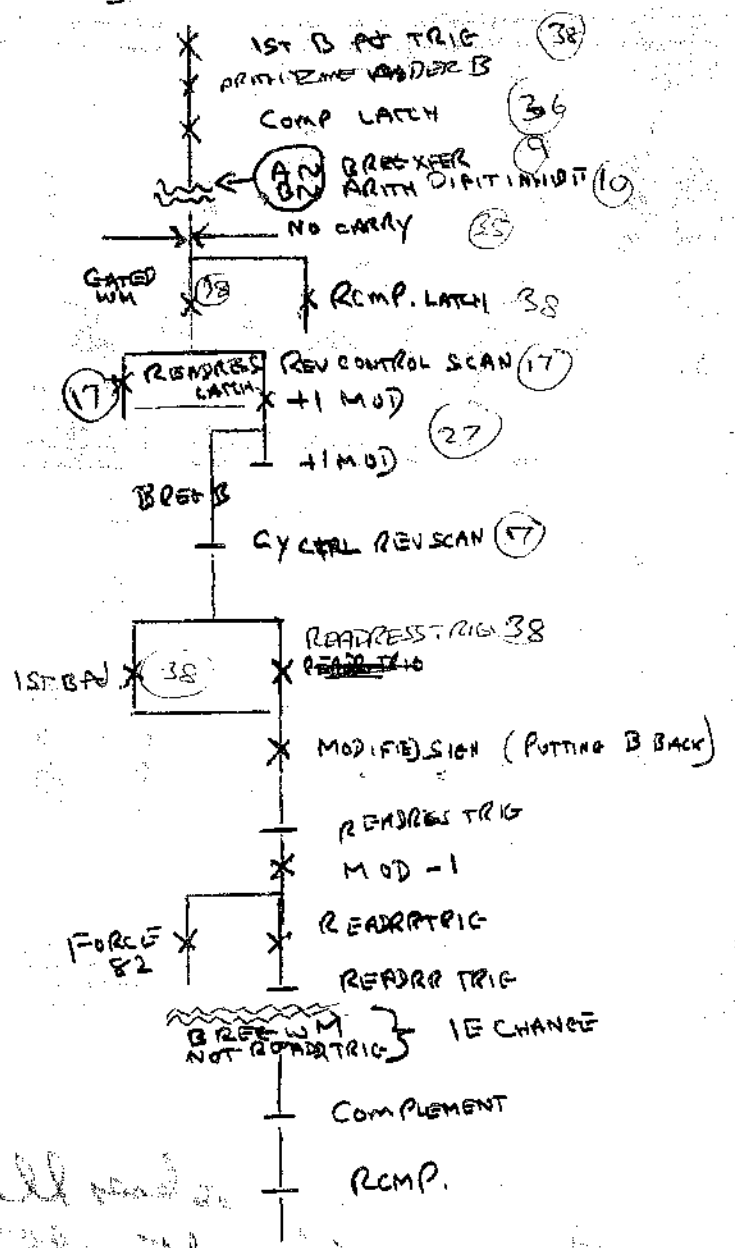 1ST B AJ TRIG 38
ARITH ZONE ADDER B
COMP LATCH 36
AN B REG XFER 9
BN ARITH DIGIT INHIBIT 10
NO CARRY 35
GATED
WM
38 RCMP. LATCH 38
17 READRESS
LATCH
REV CONTROL SCAN 17
+1 MOD
27
+1 MOD
B REG B
CY CTRL REV SCAN 17
READRESS TRIG 38
1ST BAJ 38
MODIFIED SIGN (PUTTING B BACK)
READRES TRIG
MOD -1
FORCE
82
READRR TRIG
READRR TRIG
B REG WM
NOT READR TRIG } IE CHANGE
COMPLEMENT
RCMP.